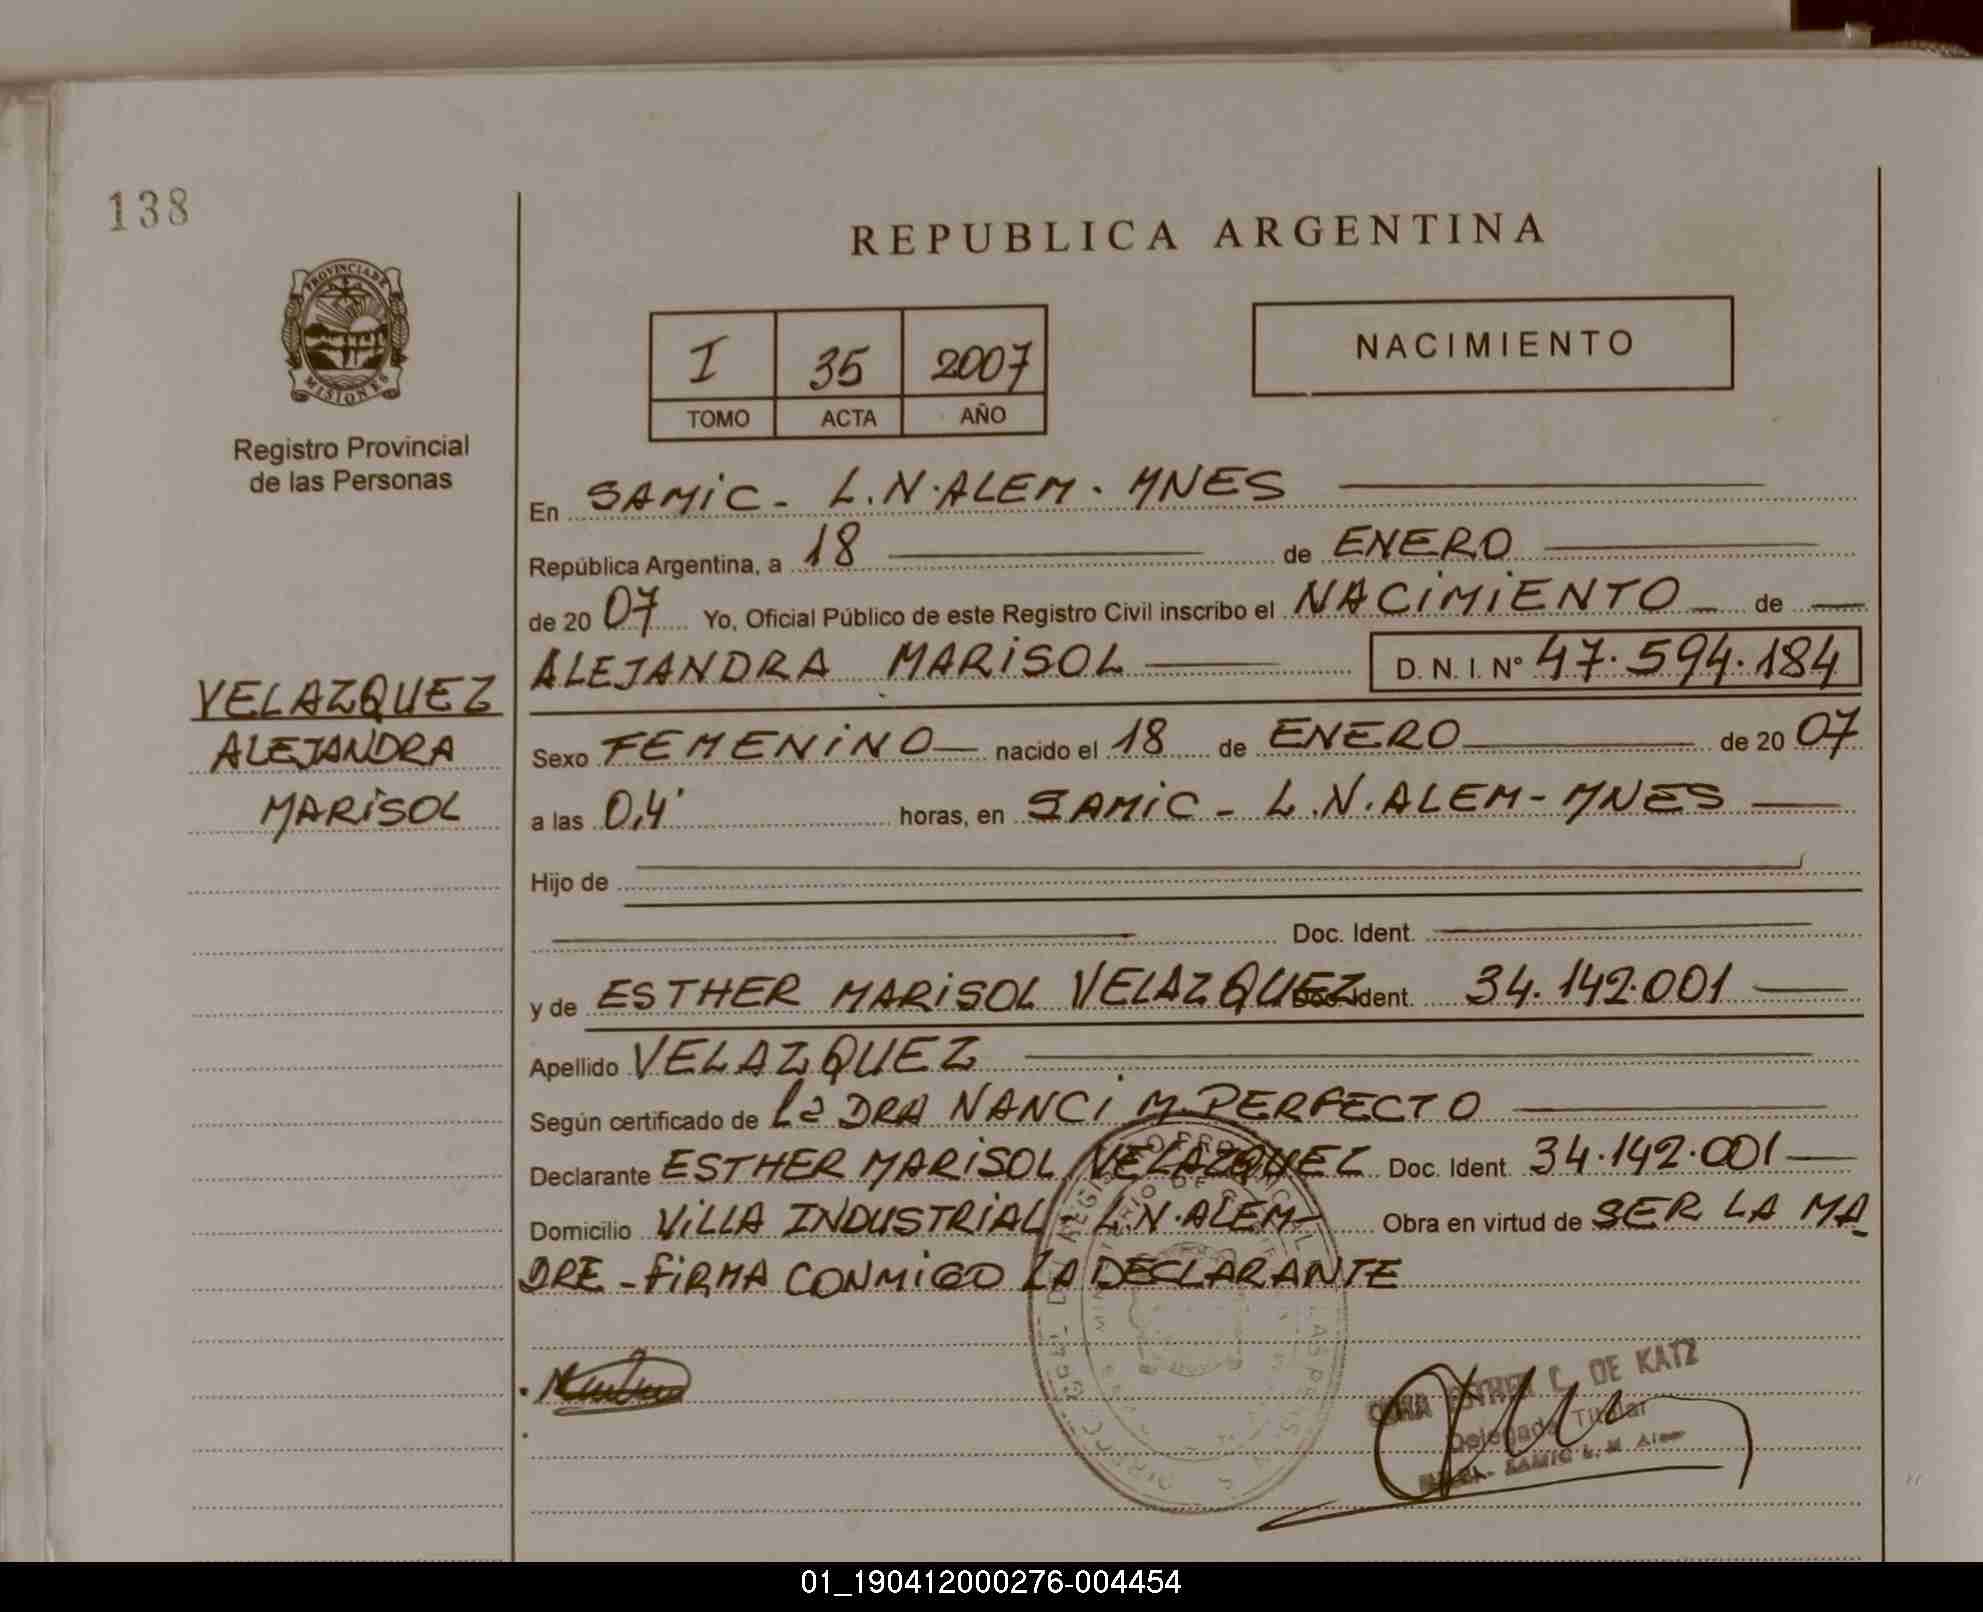 138
REPUBLICA ARGENTINA
PROVINCIA DE
MISIONES
Registro Provincial
de las Personas
I 35 2007
TOMO ACTA AÑO
NACIMIENTO
En SAMIC - L.N.ALEM. MNES
República Argentina, a 18 de ENERO
de 2007 Yo, Oficial Público de este Registro Civil inscribo el NACIMIENTO de
ALEJANDRA MARISOL D.N.I. Nº 47.594.184
VELAZQUEZ
ALEJANDRA
MARISOL
Sexo FEMENINO nacido el 18 de ENERO de 2007
a las 0,4' horas, en SAMIC - L.N.ALEM - MNES
Hijo de
Doc. Ident.
y de ESTHER MARISOL VELAZQUEZ Doc. Ident. 34.142.001
Apellido VELAZQUEZ
Según certificado de la DRA NANCI M. PERFECTO
Declarante ESTHER MARISOL VELAZQUEZ Doc. Ident. 34.142.001
Domicilio VILLA INDUSTRIAL L.N.ALEM Obra en virtud de SER LA MA
DRE - FIRMA CONMIGO LA DECLARANTE
ESTHER C. DE KATZ
Delegada Titular
SAMIC L. N. Alem
01_190412000276-004454